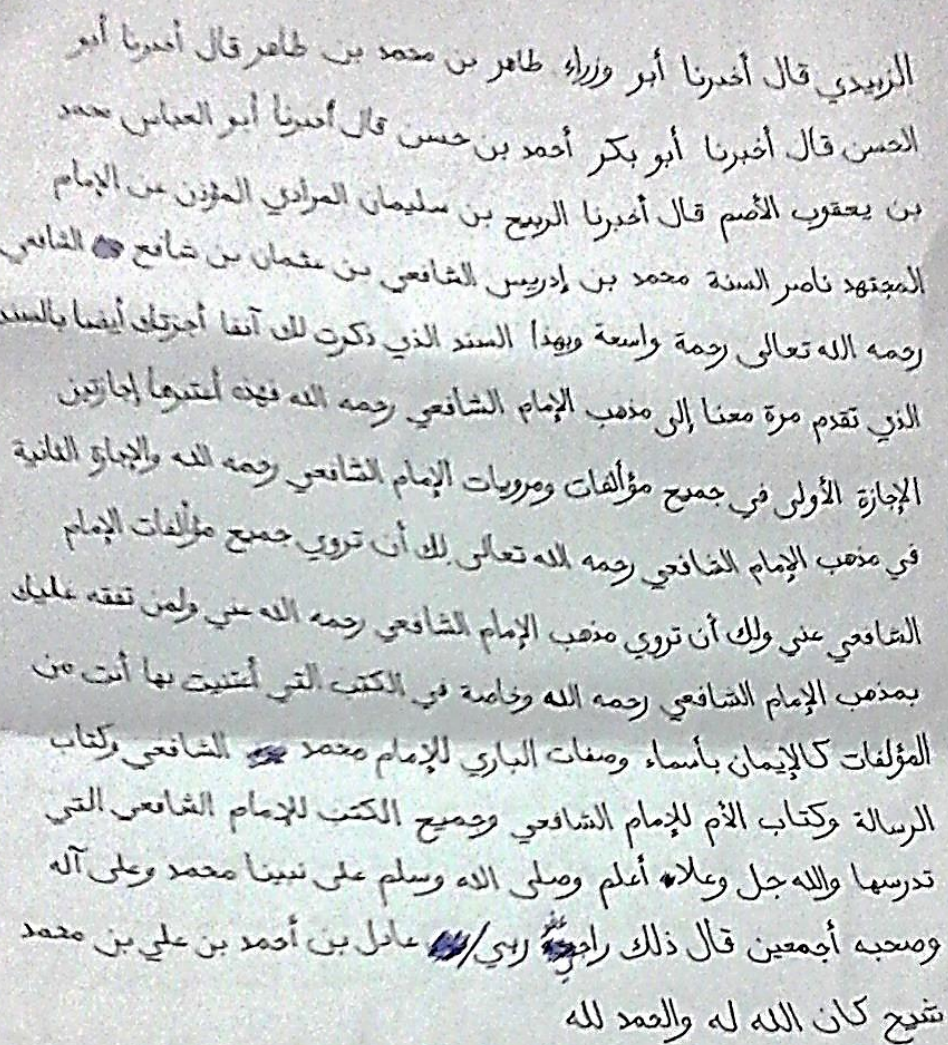 الزبيدي قال أخبرنا أبو وزراء طاهر بن محمد بن طاهر قال أخبرنا أبو
الحسن قال أخبرنا أبو بكر أحمد بن حسن قال أخبرنا أبو العباس محمد
بن يعقوب الأصم قال أخبرنا الربيح بن سليمان المرادي المؤذن عن الإمام
المجتهد ناصر السنة محمد بن إدريس الشافعي بن عثمان بن شافع الشافعي
رحمه الله تعالى رحمة واسعة وبهذا السند الذي ذكرت لك آنفا أجزتك أيضا بالسند
الذي تقدم مرة معنا إلى مذهب الإمام الشافعي رحمه الله فهذه أعتبرها إجازتين
الإجازة الأولى في جميع مؤألفات ومرويات الإمام الشافعي رحمه الله والإجازة الثانية
في مذهب الإمام الشافعي رحمه الله تعالى لك أن تروي جميع مؤلفات الإمام
الشافعي عني ولك أن تروي مذهب الإمام الشافعي رحمه الله عني ولمن تفقه عليك
بمذهب الإمام الشافعي رحمه الله وخاصة في الكتب التي أعتنيت بها أنت من
المؤلفات كالإيمان بأسماء وصفات الباري للإمام محمد الشافعي وكتاب
الرسالة وكتاب الأم للإمام الشافعي وجميع الكتب للإمام الشافعي التي
تدرسها والله جل وعلا أعلم وصلى الله وسلم على نبينا محمد وعلى آله
وصحبه أجمعين قال ذلك راجي ربي/ عادل بن أحمد بن علي بن محمد
شيح كان الله له والحمد لله